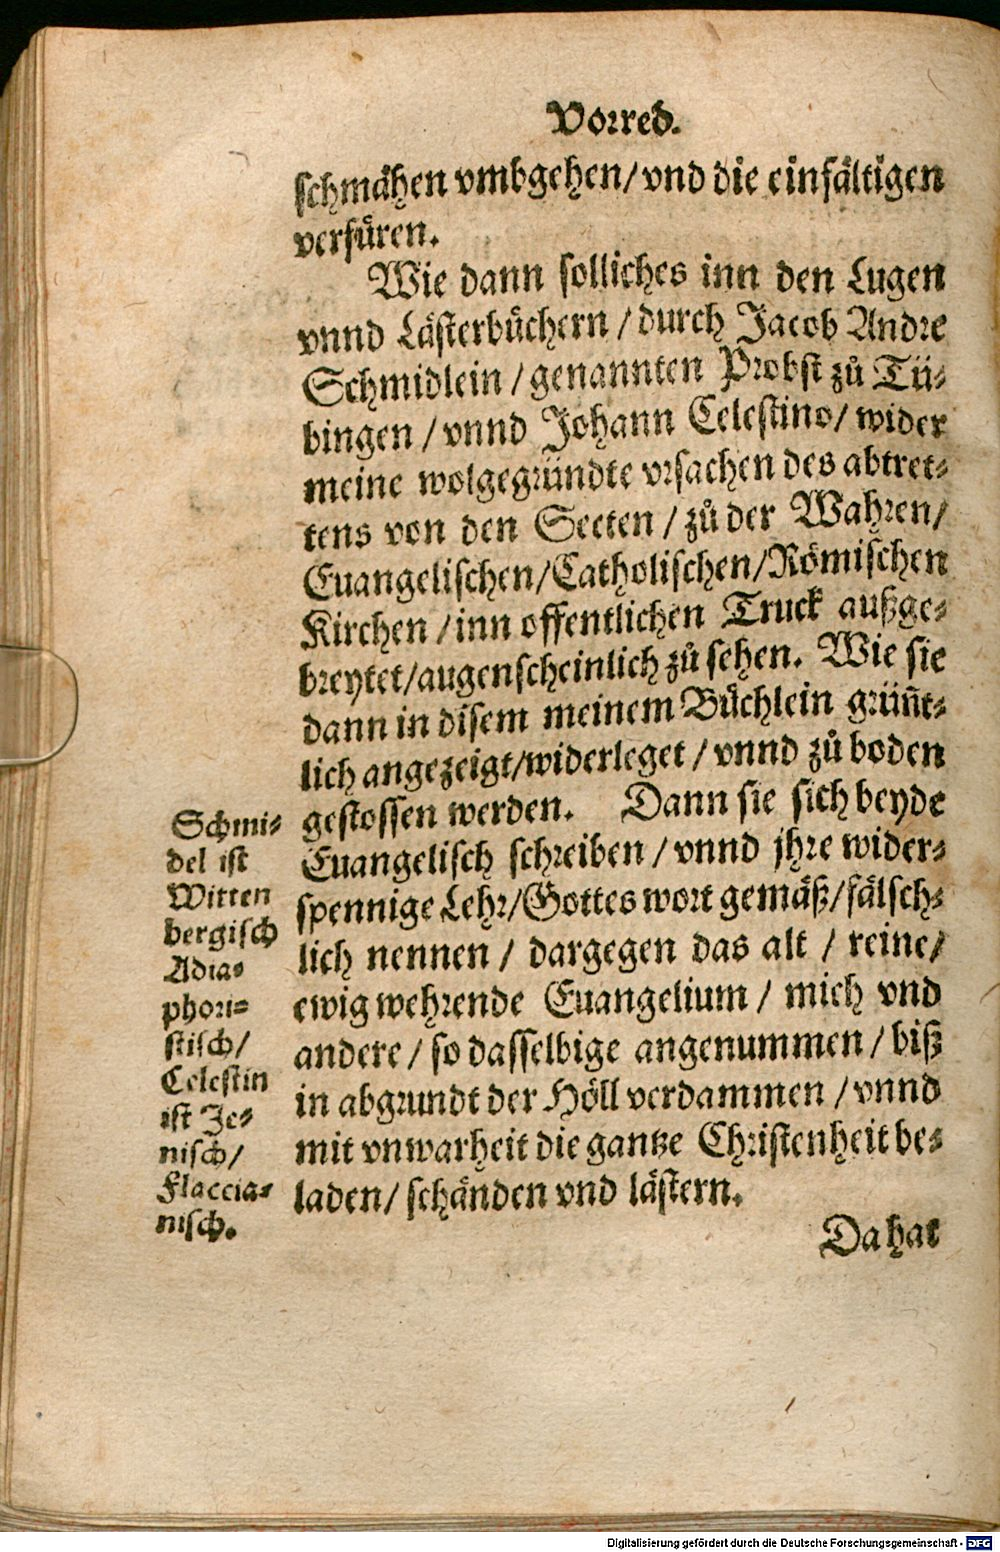 Vorred.
schmähen vmbgehen/vnd die einfältigen
verfüren.
Wie dann solliches inn den Lugen
vnnd Lästerbüchern / durch Jacob Andre
Schmidlein / genannten Probst zů Tü-
bingen / vnnd Johann Celestino / wider
meine wolgegründte vrsachen des abtret-
tens von den Secten / zů der Wahren/
Euangelischen/Catholischen/Römischen
Kirchen / inn offentlichen Truck außge-
breytet/augenscheinlich zů sehen. Wie sie
dann in disem meinem Büchlein grün̄t-
lich angezeigt/widerleget / vnnd zů boden
gestossen werden. Dann sie sich beyde
Euangelisch schreiben / vnnd jhre wider-
spennige Lehr/Gottes wort gemäß/fälsch-
lich nennen / dargegen das alt / reine/
ewig wehrende Euangelium / mich vnd
andere / so dasselbige angenummen / biß
in abgrundt der Höll verdammen / vnnd
mit vnwarheit die gantze Christenheit be-
laden/ schänden vnd lästern.
Schmi-
del ist
Witten
bergisch
Adia-
phori-
stisch/
Celestin
ist Je-
nisch/
Flaccia-
nisch.
Da hat
Digitalisierung gefördert durch die Deutsche Forschungsgemeinschaft - DFG